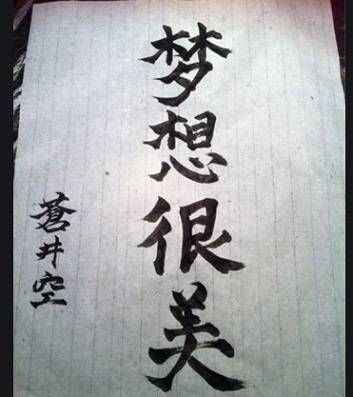 梦想很美
蒼井空